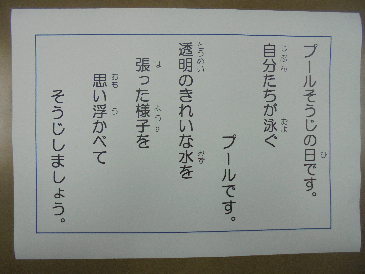 プールそうじの日です。
自分たちが泳ぐ
プールです。
透明のきれいな水を
張った様子を
思い浮かべて
そうじしましょう。